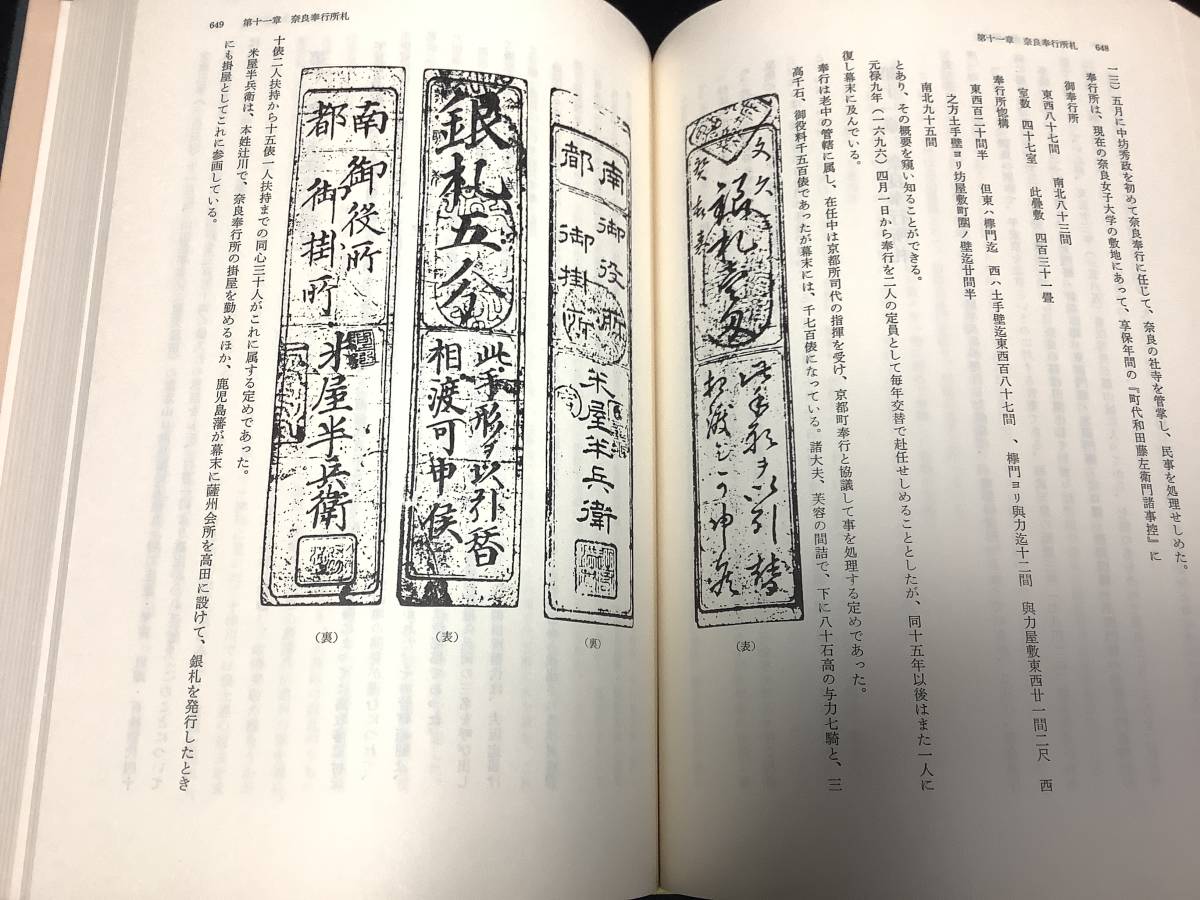 第十一章　奈良奉行所札
648
一三）五月に中坊秀政を初めて奈良奉行に任じて、奈良の社寺を管掌し、民事を処理せしめた。
奉行所は、現在の奈良女子大学の敷地にあって、享保年間の『町代和田藤左衛門諸事控』に
御奉行所
東西八十七間　南北八十三間
室数　四十七室　此畳敷　四百三十一畳
奉行所惣構
東西百二十間半　但東ハ欅門迄　西ハ土手壁迄東西百八十七間、欅門ヨリ與力迄十二間　與力屋敷東西廿一間二尺　西
之方土手壁ヨリ坊屋敷町圍ノ壁迄廿間半
南北九十五間
とあり、その概要を窺い知ることができる。
元禄九年（一六九六）四月一日から奉行を二人の定員として毎年交替で赴任せしめることとしたが、同十五年以後はまた一人に
復し幕末に及んでいる。
奉行は老中の管轄に属し、在任中は京都所司代の指揮を受け、京都町奉行と協議して事を処理する定めであった。
高千石、御役料千五百俵であったが幕末には、千七百俵になっている。諸大夫、芙容の間詰で、下に八十石高の与力七騎と、三
文久
銀札壱匁
癸亥
此手形ヲ以引替
相渡可申候
（表）
南都
御役所
御掛所
米屋半兵衛
（裏）
649
第十一章　奈良奉行所札
銀札五分
此手形ヲ以引替
相渡可申候
（表）
南都
御役所
御掛所
米屋半兵衛
（裏）
十俵二人扶持から十五俵一人扶持までの同心三十人がこれに属する定めであった。
米屋半兵衛は、本姓辻川で、奈良奉行所の掛屋を勤めるほか、鹿児島藩が幕末に薩州会所を高田に設けて、銀札を発行したとき
にも掛屋としてこれに参画している。